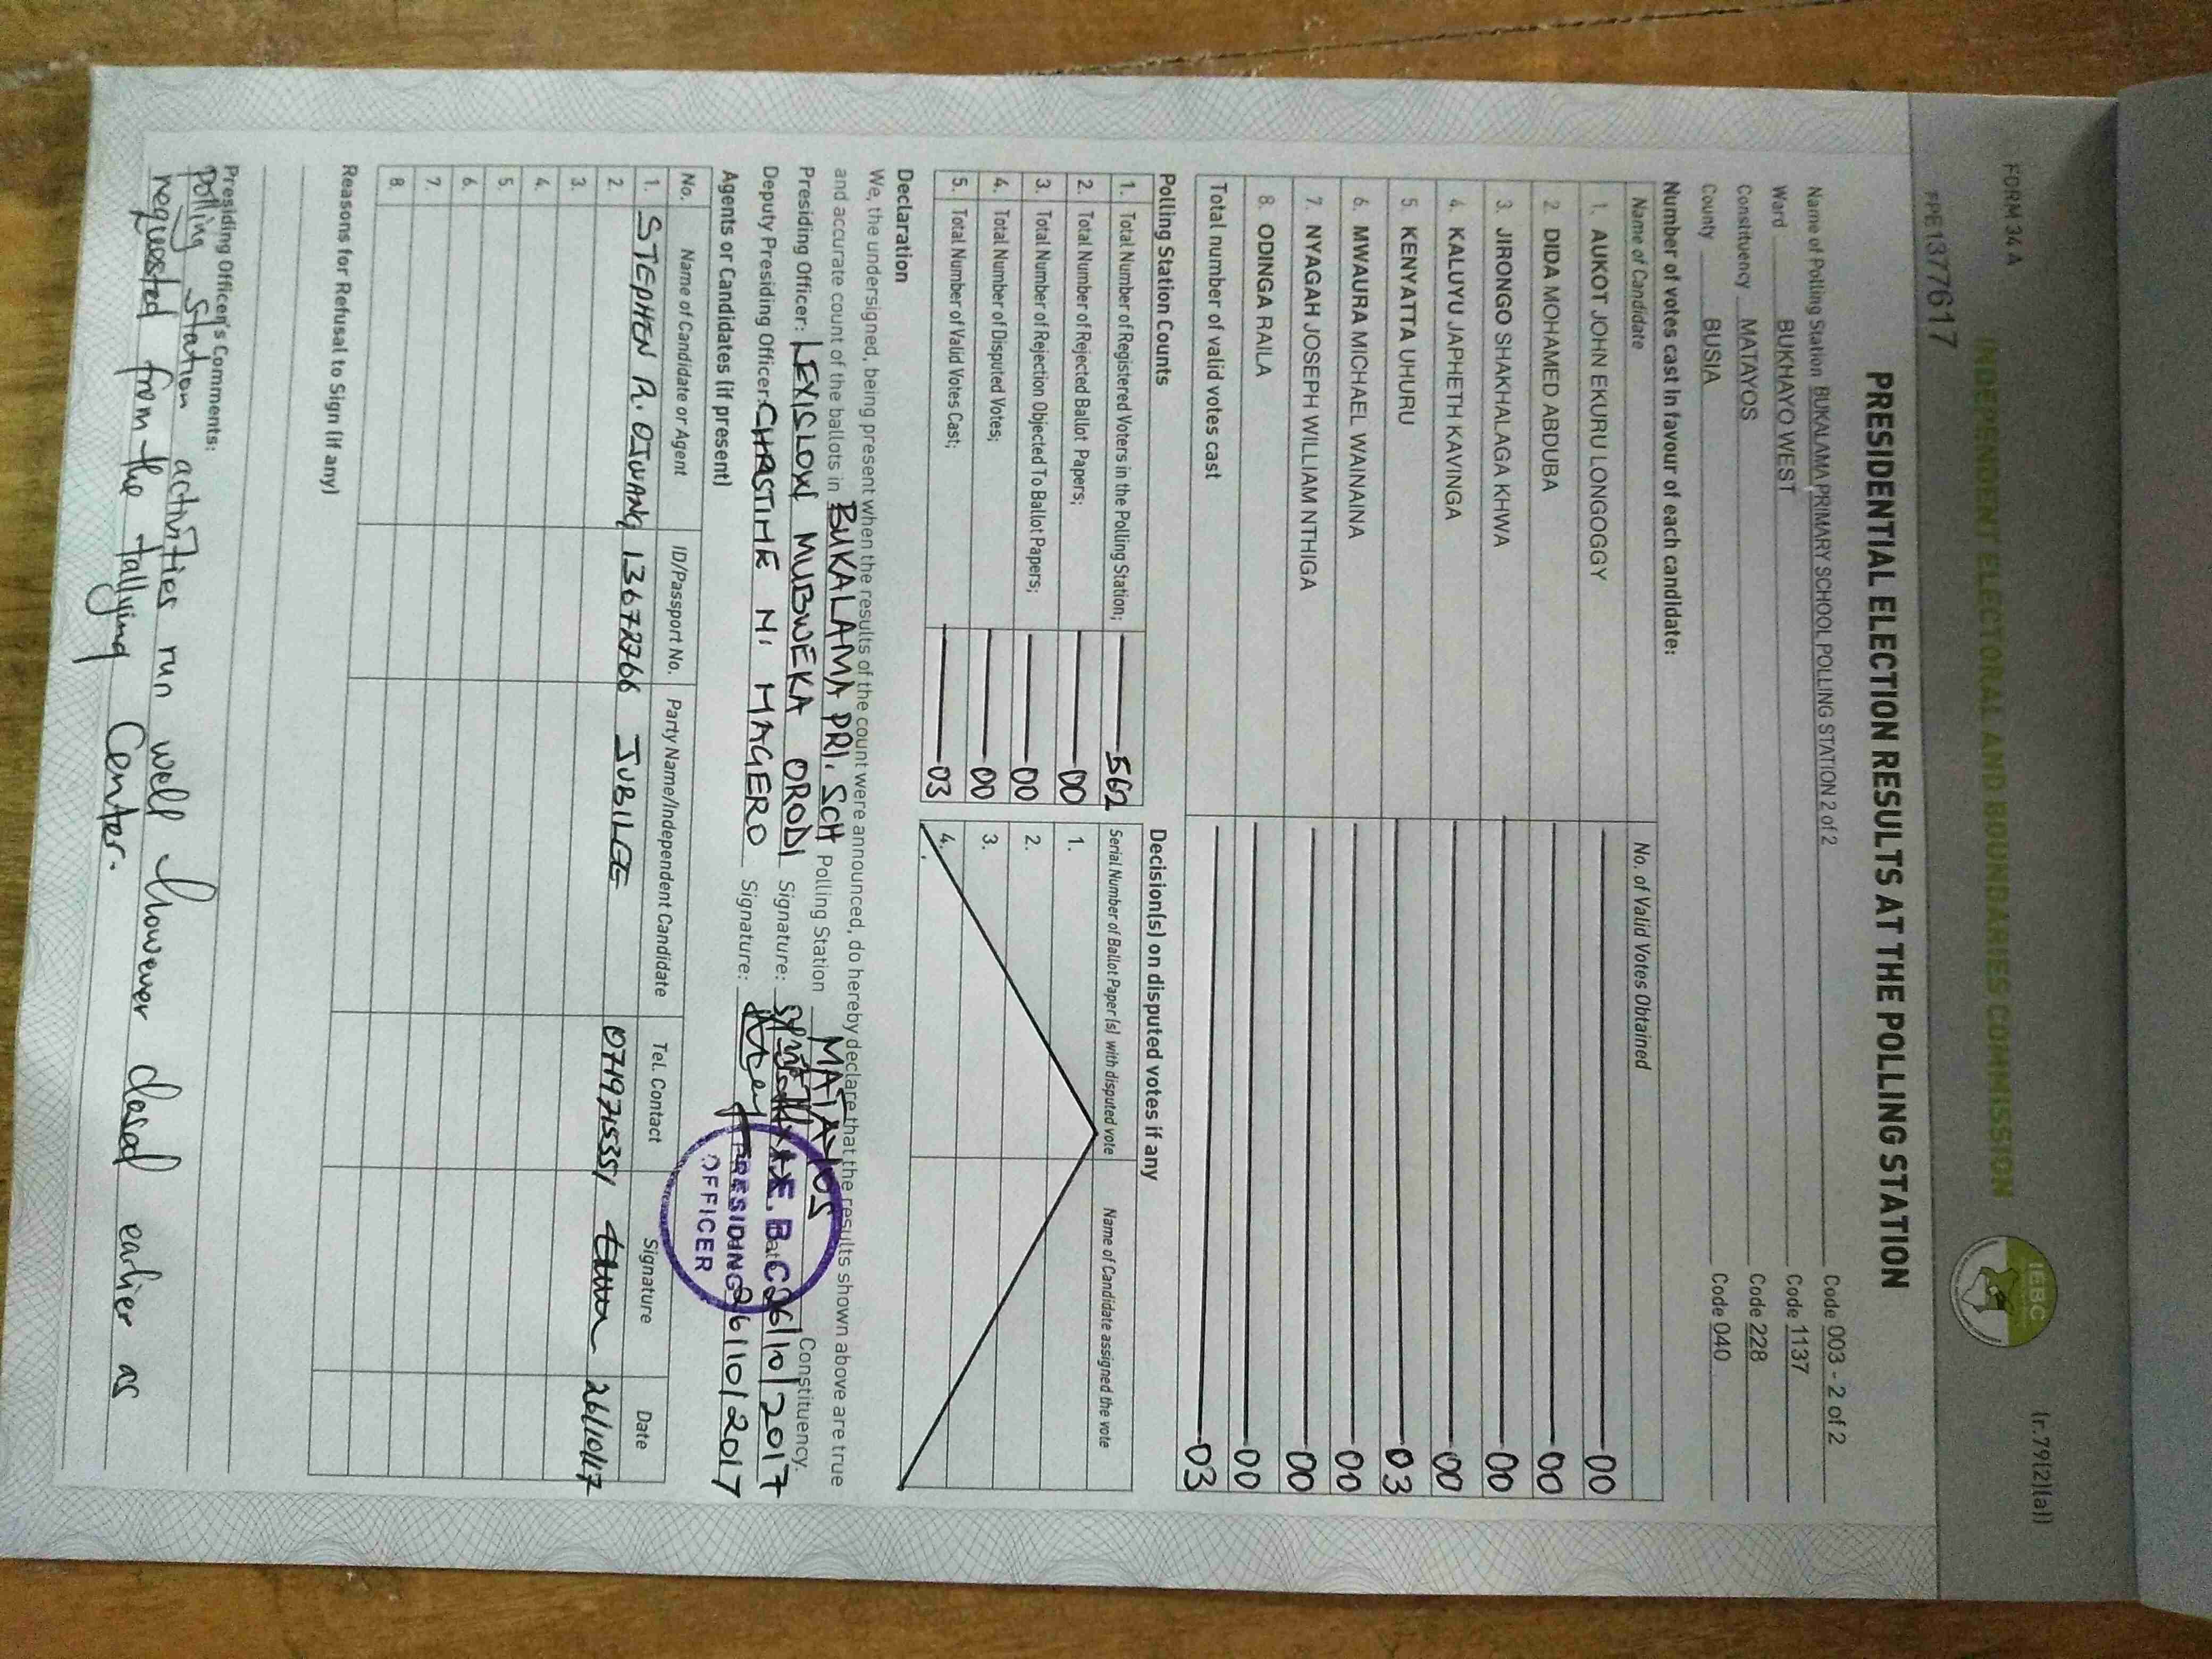 FORM 34 A
(r.79(2)(a))
INDEPENDENT ELECTORAL AND BOUNDARIES COMMISSION
IEBC
PRE1377617
PRESIDENTIAL ELECTION RESULTS AT THE POLLING STATION
Name of Polling Station BUKALAMA PRIMARY SCHOOL POLLING STATION 2 of 2 Code 003 - 2 of 2
Ward BUKHAYO WEST Code 1137
Constituency MATAYOS Code 228
County BUSIA Code 040
Number of votes cast in favour of each candidate:
Name of Candidate No. of Valid Votes Obtained
1. AUKOT JOHN EKURU LONGOGGY 00
2. DIDA MOHAMED ABDUBA 00
3. JIRONGO SHAKHALAGA KHWA 00
4. KALUYU JAPHETH KAVINGA 00
5. KENYATTA UHURU 03
6. MWAURA MICHAEL WAINAINA 00
7. NYAGAH JOSEPH WILLIAM NTHIGA 00
8. ODINGA RAILA 00
Total number of valid votes cast 03
Polling Station Counts
1. Total Number of Registered Voters in the Polling Station; 562
2. Total Number of Rejected Ballot Papers; 00
3. Total Number of Rejection Objected To Ballot Papers; 00
4. Total Number of Disputed Votes; 00
5. Total Number of Valid Votes Cast; 03
Decision(s) on disputed votes if any
Serial Number of Ballot Paper (s) with disputed vote Name of Candidate assigned the vote
1.
2.
3.
4.
Declaration
We, the undersigned, being present when the results of the count were announced, do hereby declare that the results shown above are true
and accurate count of the ballots in BUKALAMA PRI. SCH Polling Station MATAYOS Constituency.
Presiding Officer: LEXISLOW MUBWEKA ORODI Signature: 26/10/2017
Deputy Presiding Officer: CHRSTINE N. MAGERO Signature: 26/10/2017
PRESIDING
OFFICER
Agents or Candidates (if present)
No. Name of Candidate or Agent ID/Passport No. Party Name/Independent Candidate Tel. Contact Signature Date
1. STEPHEN R. OJWANG 13672766 JUBILEE 0719715351 26/10/17
2.
3.
4.
5.
6.
7.
8.
Reasons for Refusal to Sign (if any)
Presiding Officer's Comments:
Polling Station activities run well however closed earlier as
requested from the tallying Center.